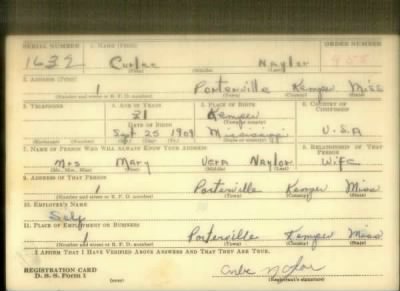 SERIAL NUMBER 1. NAME (Print) ORDER NUMBER
1632 Curlee Naylor 955
(First) (Middle) (Last)
2. ADDRESS (Print)
1 Porterville Kemper Miss
(Number and street or R. F. D. number) (Town) (County) (State)
3. TELEPHONE 4. AGE IN YEARS 5. PLACE OF BIRTH 6. COUNTRY OF CITIZENSHIP
31 Kemper
DATE OF BIRTH (Town or county)
Sept 25 1909 Mississippi U.S.A
(Exchange) (Number) (Mo.) (Day) (Yr.) (State or country)
7. NAME OF PERSON WHO WILL ALWAYS KNOW YOUR ADDRESS 8. RELATIONSHIP OF THAT PERSON
Mrs Mary Vera Naylor Wife
(Mr., Mrs., Miss) (First) (Middle) (Last)
9. ADDRESS OF THAT PERSON
1 Porterville Kemper Miss
(Number and street or R. F. D. number) (Town) (County) (State)
10. EMPLOYER'S NAME
Self
11. PLACE OF EMPLOYMENT OR BUSINESS
1 Porterville Kemper Miss
(Number and street or R. F. D. number) (Town) (County) (State)
I AFFIRM THAT I HAVE VERIFIED ABOVE ANSWERS AND THAT THEY ARE TRUE.
REGISTRATION CARD
D. S. S. Form 1 (over) (Registrant's signature)